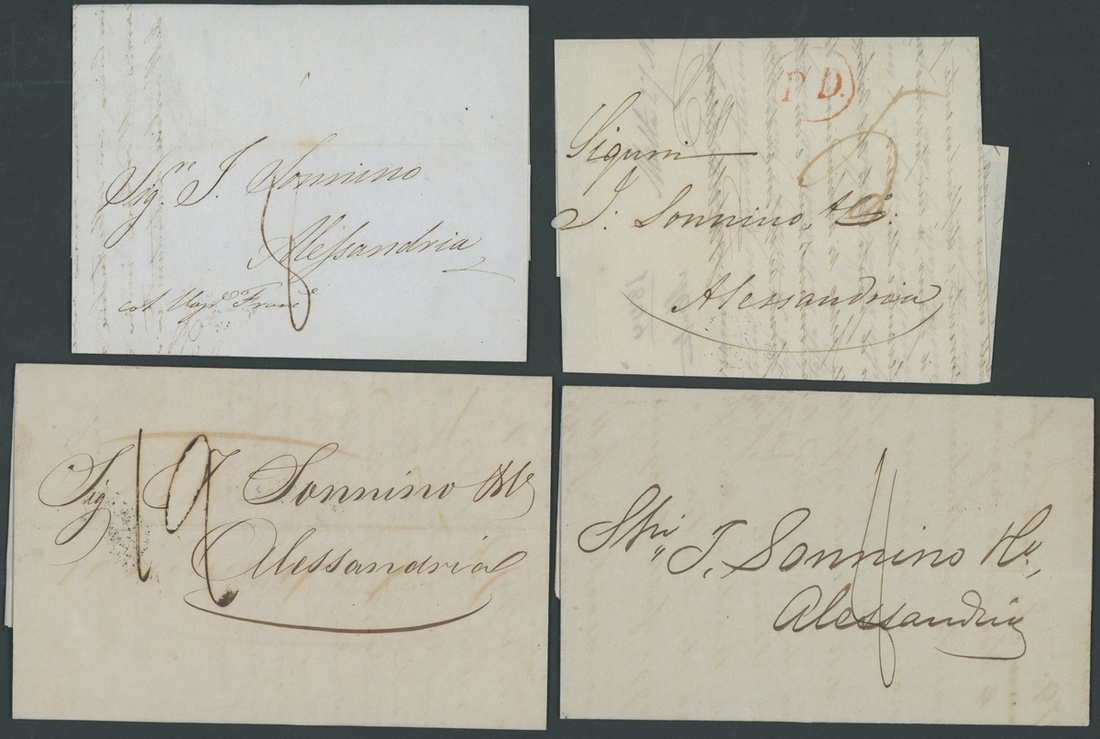 Sigr. J. Sonnino
Alessandria
col Vape. Frane.
P.D.
Siguri
J. Sonnino, & C.
Alessandria
19
Sig. J Sonnino
Alessandria
J. Sonnino
Alessandria